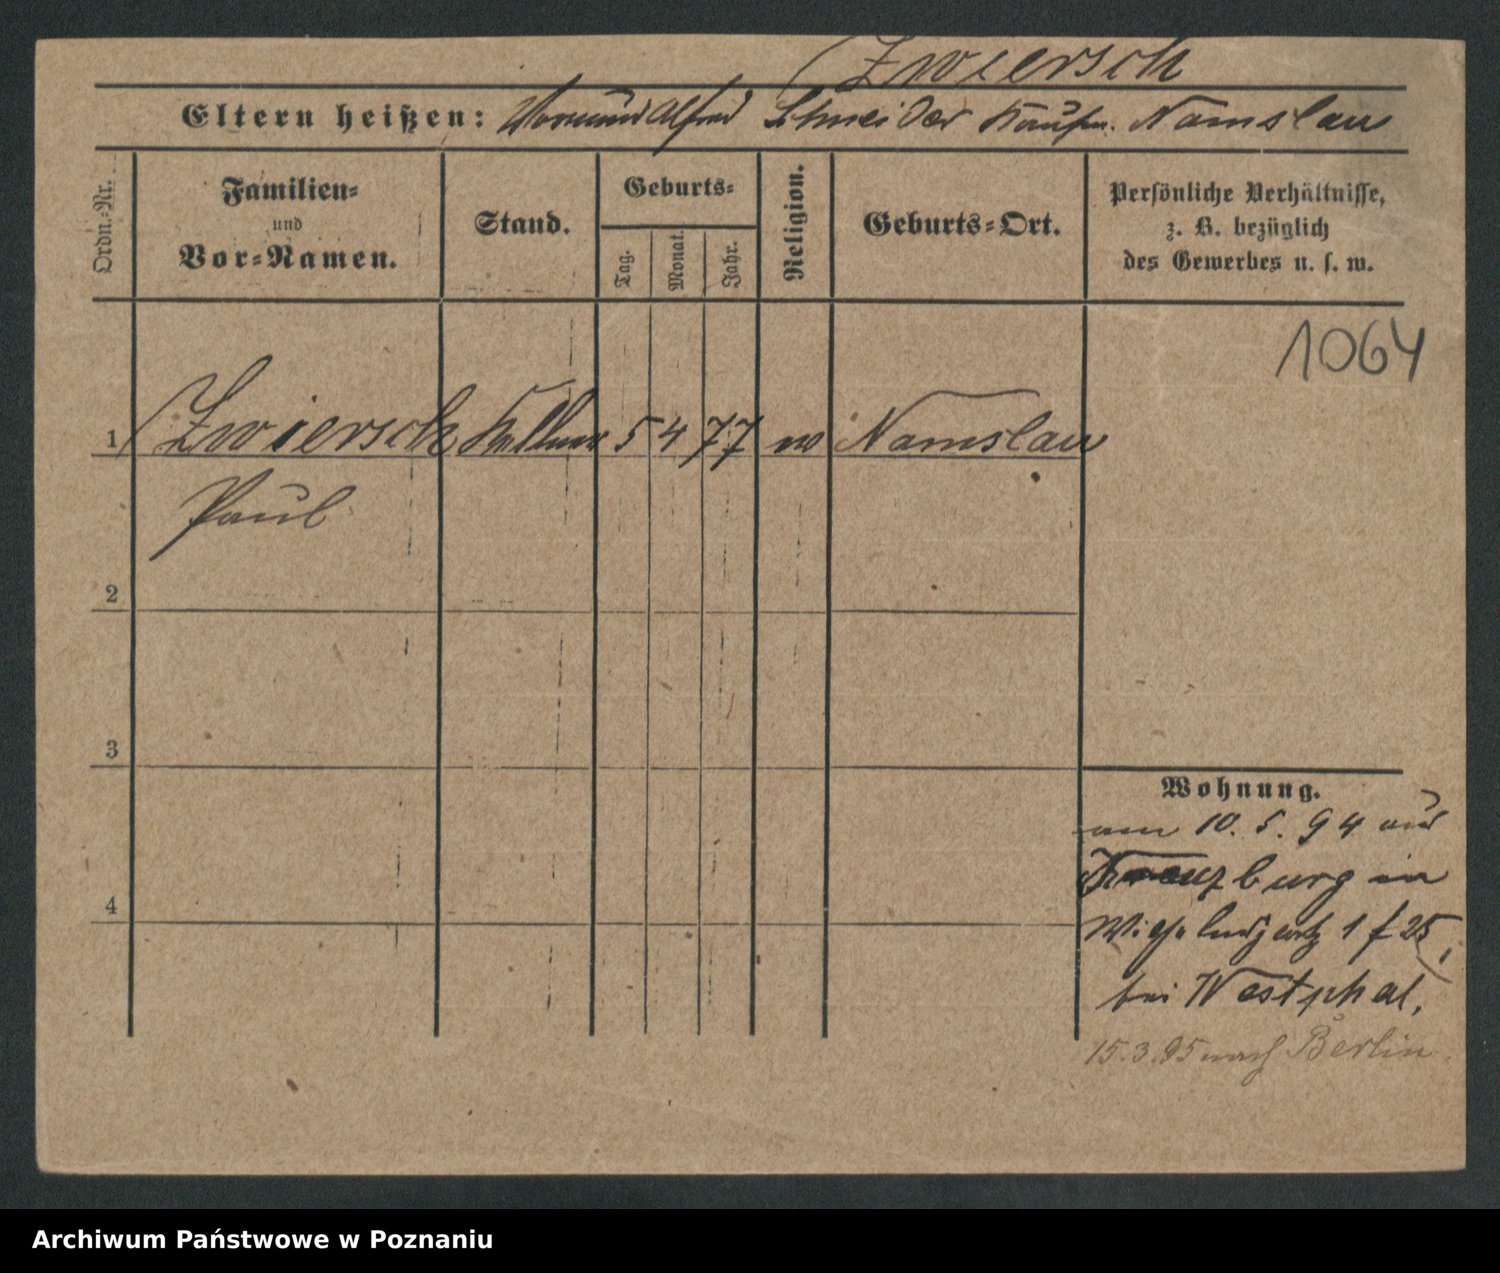 Zwiersch
Eltern heißen: Vormund Alfred Schneider Kaufm. Namslau
Ordn.-Nr.
Familien-
und
Vor-Namen.
Stand.
Geburts-
Tag.
Monat.
Jahr.
Religion.
Geburts-Ort.
Persönliche Verhältnisse,
z. B. bezüglich
des Gewerbes u. s. w.
1064
1 Zwiersch Kellner 5 4 77 Namslau
Paul
2
3
4
Wohnung.
am 10. 5. 94 aus
Kreuzburg in
1 f 25,
bei Westphal,
15.3.95 nach Berlin.
Archiwum Państwowe w Poznaniu